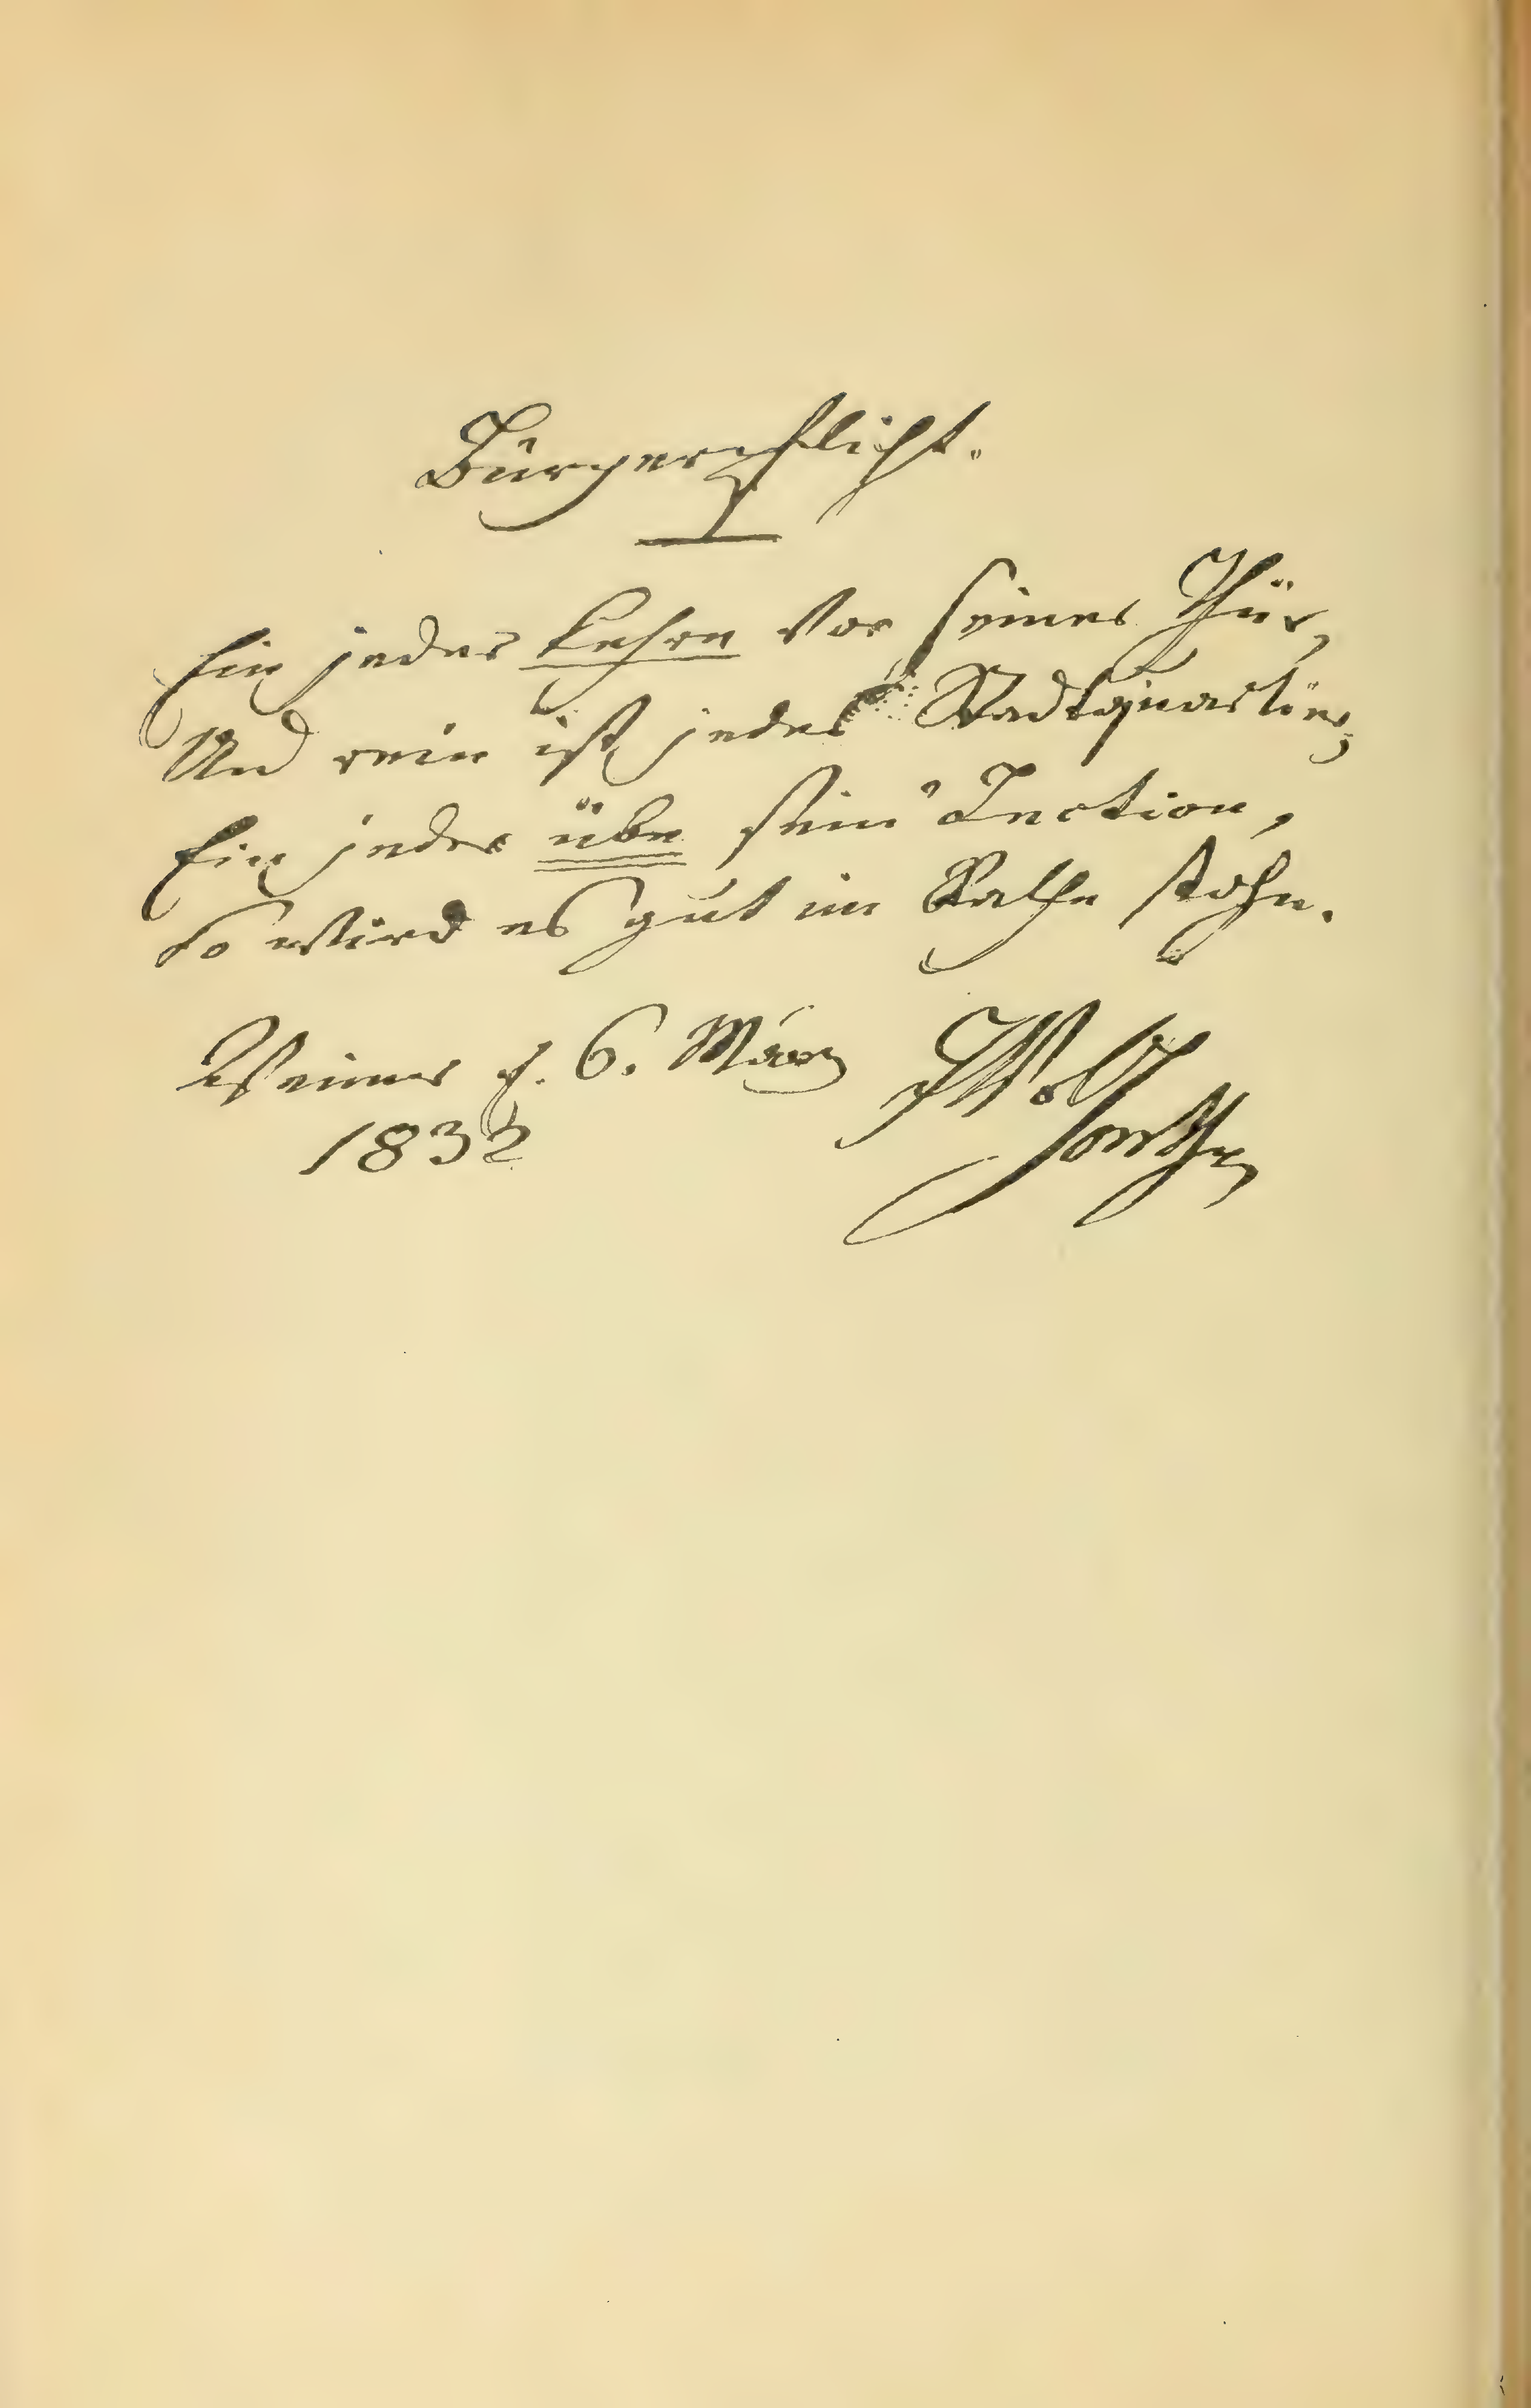 Bürgerpflicht.
Ein jeder kehre vor seiner Thür,
Und rein ist jedes Stadtquartier,
Ein jeder übe sein' Lection,
So wird es gut im Rathe stehn.
Weimar d. 6. März JWvGoethe
1832